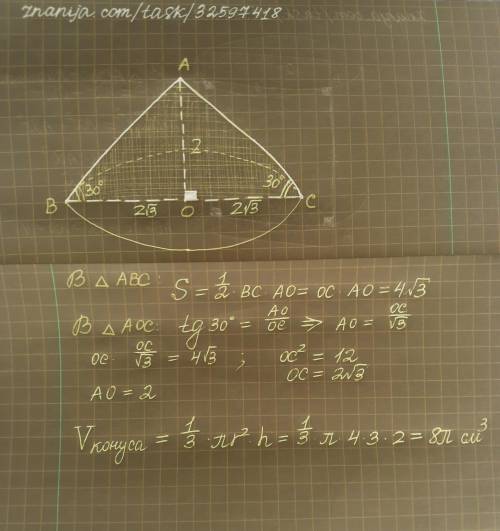 znanija.com/task/32597418
A
2
30° 30°
B 2√3 O 2√3 C
В △ ABC: S = 1/2 · BC · AO = OC · AO = 4√3
В △ AOC: tg 30° = AO/OC ⇒ AO = OC/√3
OC · OC/√3 = 4√3 ; OC² = 12
OC = 2√3
AO = 2
Vконуса = 1/3 · πr² h = 1/3 π · 4 · 3 · 2 = 8π см³